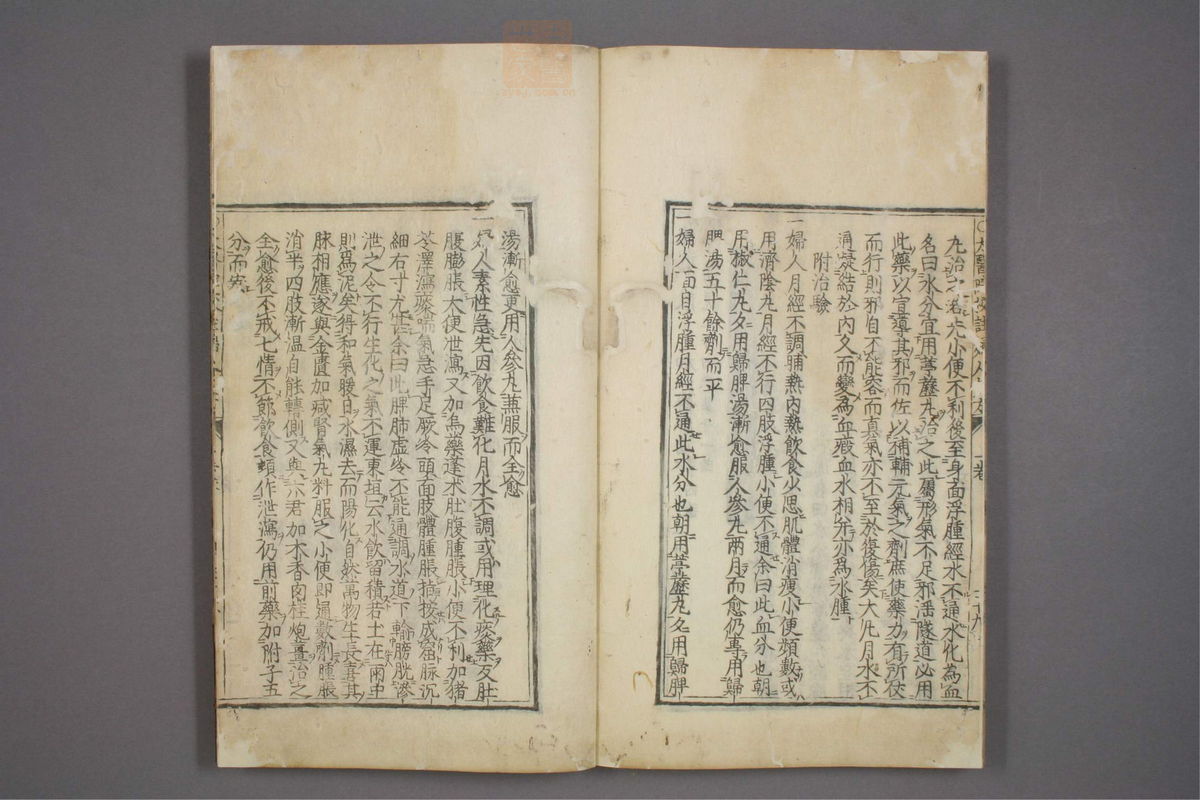 丸治之若先小便不利後至身面浮腫經水不通水化為血
名曰水分宜用葶藶丸治之此屬形氣不足邪淫隧道必用
此藥以宣導其邪而佐以補輔元氣之劑庶使藥力有所仗
而行則邪自不能容而真氣亦不至於復傷矣大凡月水不
通凝結於內久而變為血瘕血水相并亦為水腫
附治驗
一婦人月經不調晡熱內熱飲食少思肌體消瘦小便頻數或
用濟陰丸月經不行四肢浮腫小便不通余曰此血分也朝
用椒仁丸夕用歸脾湯漸愈服人參丸兩月而愈仍專用歸
脾湯五十餘劑而平
一婦人面目浮腫月經不通此水分也朝用葶藶丸夕用歸脾
湯漸愈更用人參丸兼服而全愈
一婦人素性急先因飲食難化月水不調或用理化痰藥反肚
腹膨脹大便泄瀉又加烏藥蓬朮肚腹腫脹小便不利加猪
苓澤瀉痰喘氣急手足厥冷頭面肢體腫脹指按成窟脉沉
細右寸尤甚余曰此脾肺虛冷不能通調水道下輸膀胱滲
泄之令不行生化之氣不運東垣云水飲留積若土在雨中
則爲泥矣得和氣暖日水濕去而陽化自然萬物生長喜其
脉相應遂與金匱加减腎氣丸料服之小便即通數劑腫脹
消半四肢漸温自能轉側又與六君加木香肉桂炮薑治之
全愈後不戒七情不節飲食頻作泄瀉仍用前藥加附子五
分而安